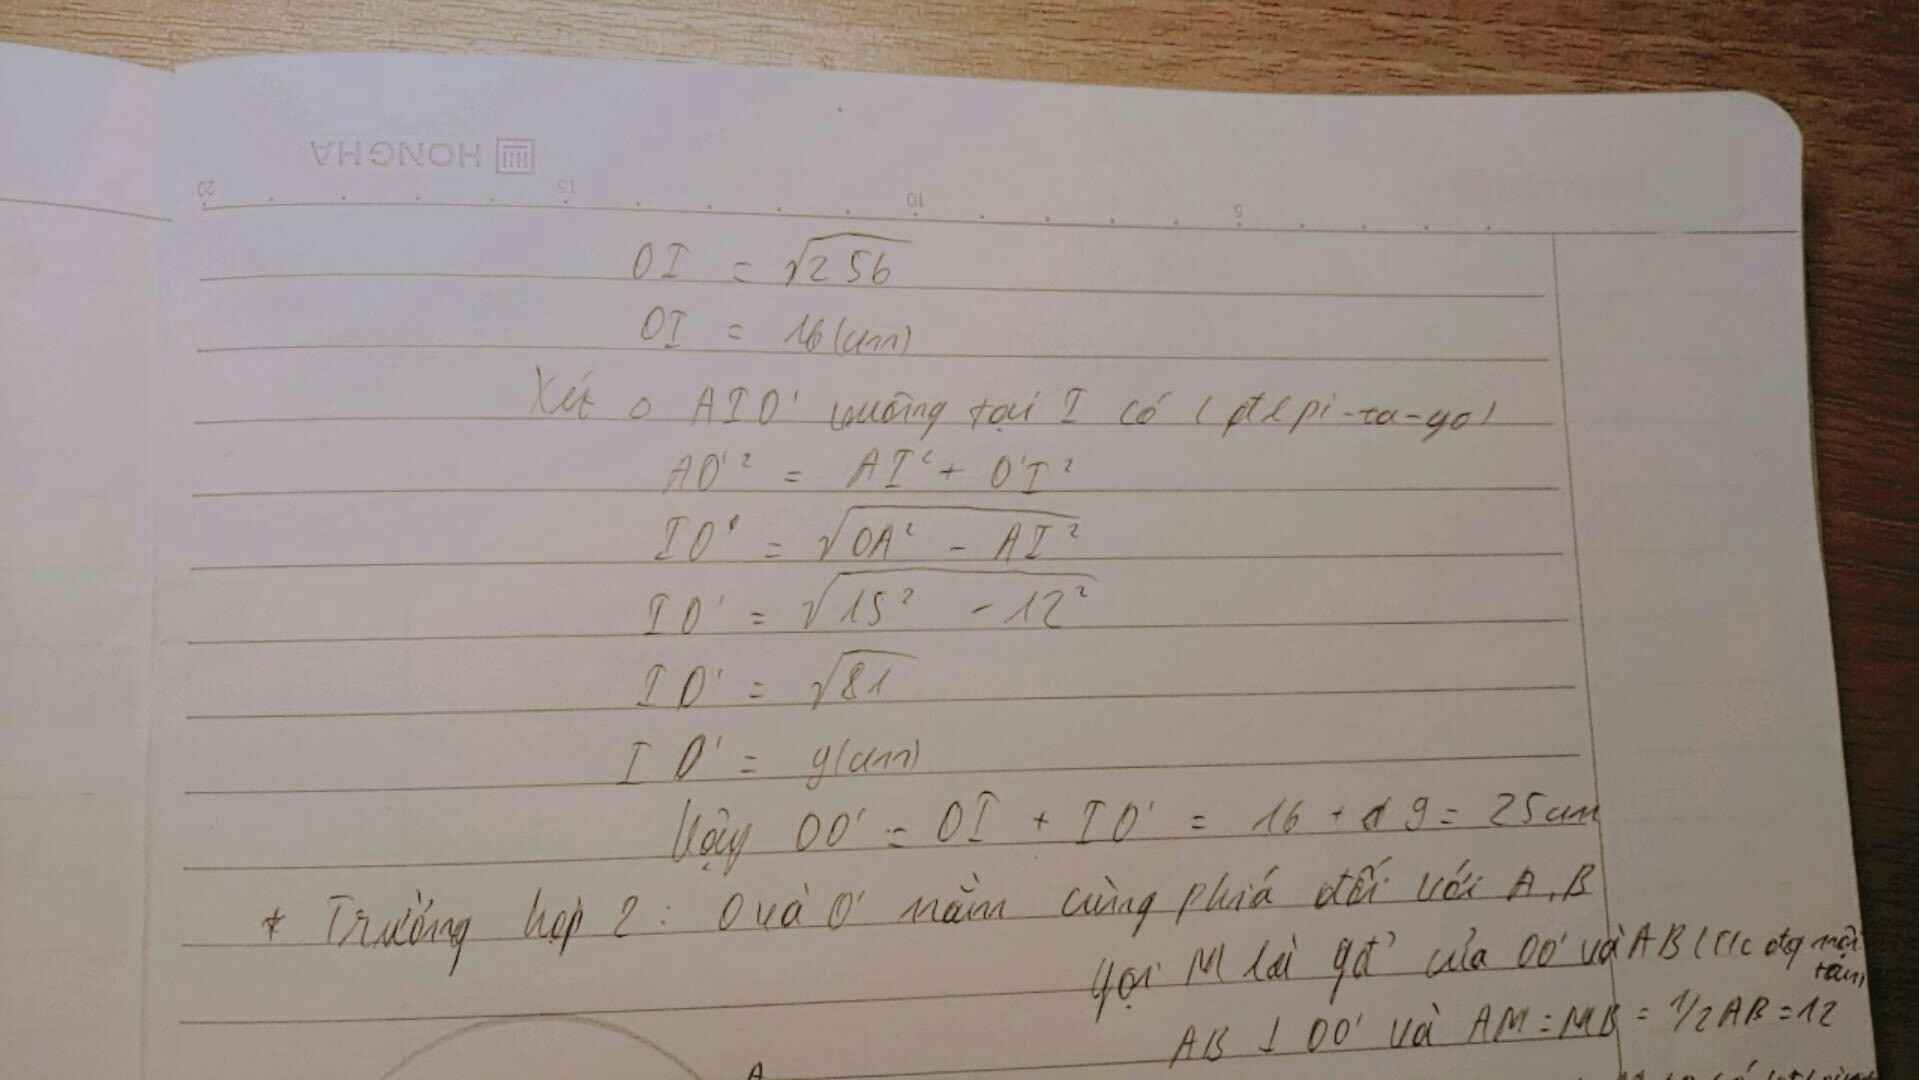 HONG HA
20 15 10 5
OI = √256
OI = 16(cm)
Xét △ AIO' vuông tại I có (đtl pi-ta-go)
AO'² = AI² + O'I²
IO' = √OA² - AI²
IO' = √15² - 12²
IO' = √81
IO' = 9(cm)
Vậy OO' = OI + IO' = 16 + 9 = 25cm
* Trường hợp 2: O và O' nằm cùng phiá đối với A,B
Gọi M là gđ' của OO' và AB (t/c đg nối tâm)
AB ⊥ OO' và AM = MB = 1/2AB = 12
A